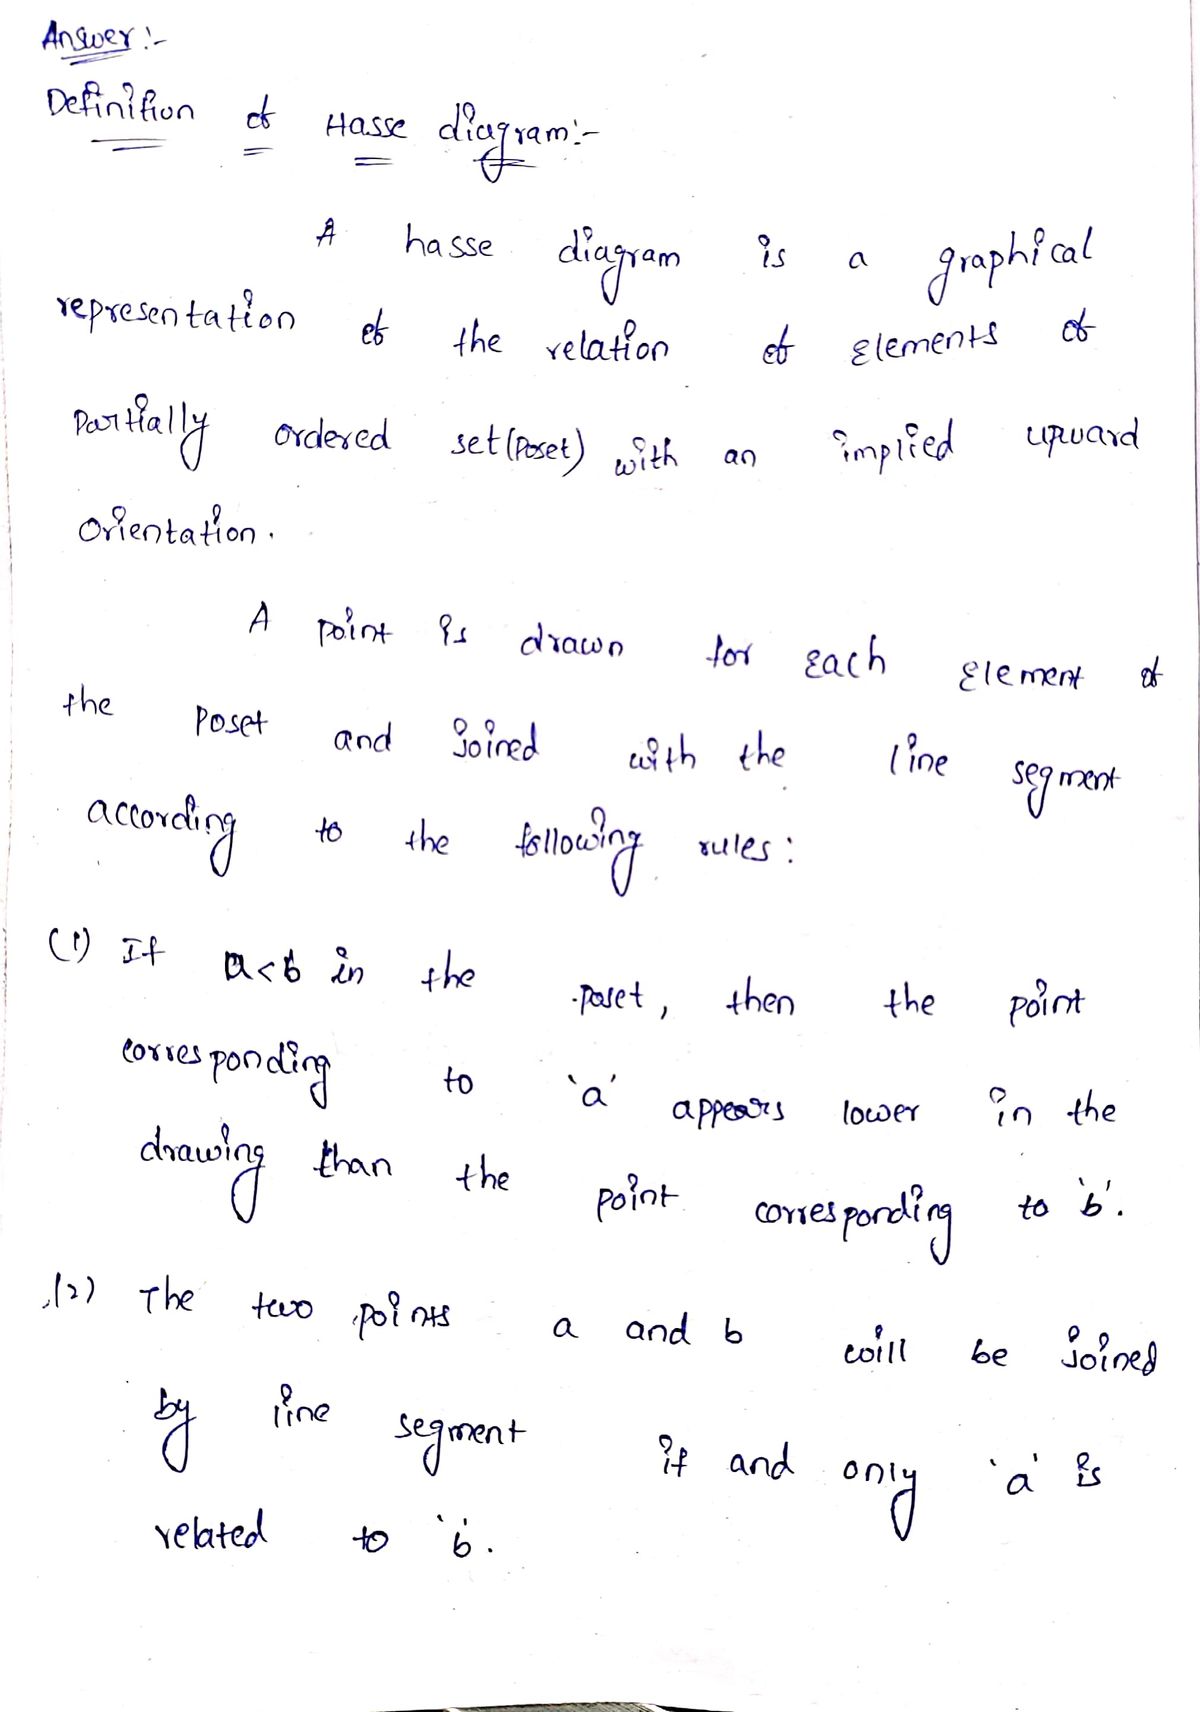 Answer :-
Definition of Hasse diagram:-
A hasse diagram is a graphical
representation of the relation of Elements of
Partially ordered set (Poset) with an implied upward
Orientation.
A point is drawn for Each Element of
the Poset and joined with the line segment
according to the following rules:
(1) If a<b in the poset, then the point
corresponding to 'a' appears lower in the
drawing than the point corresponding to 'b'.
(2) The two points a and b will be joined
by line segment if and only 'a' is
related to 'b'.